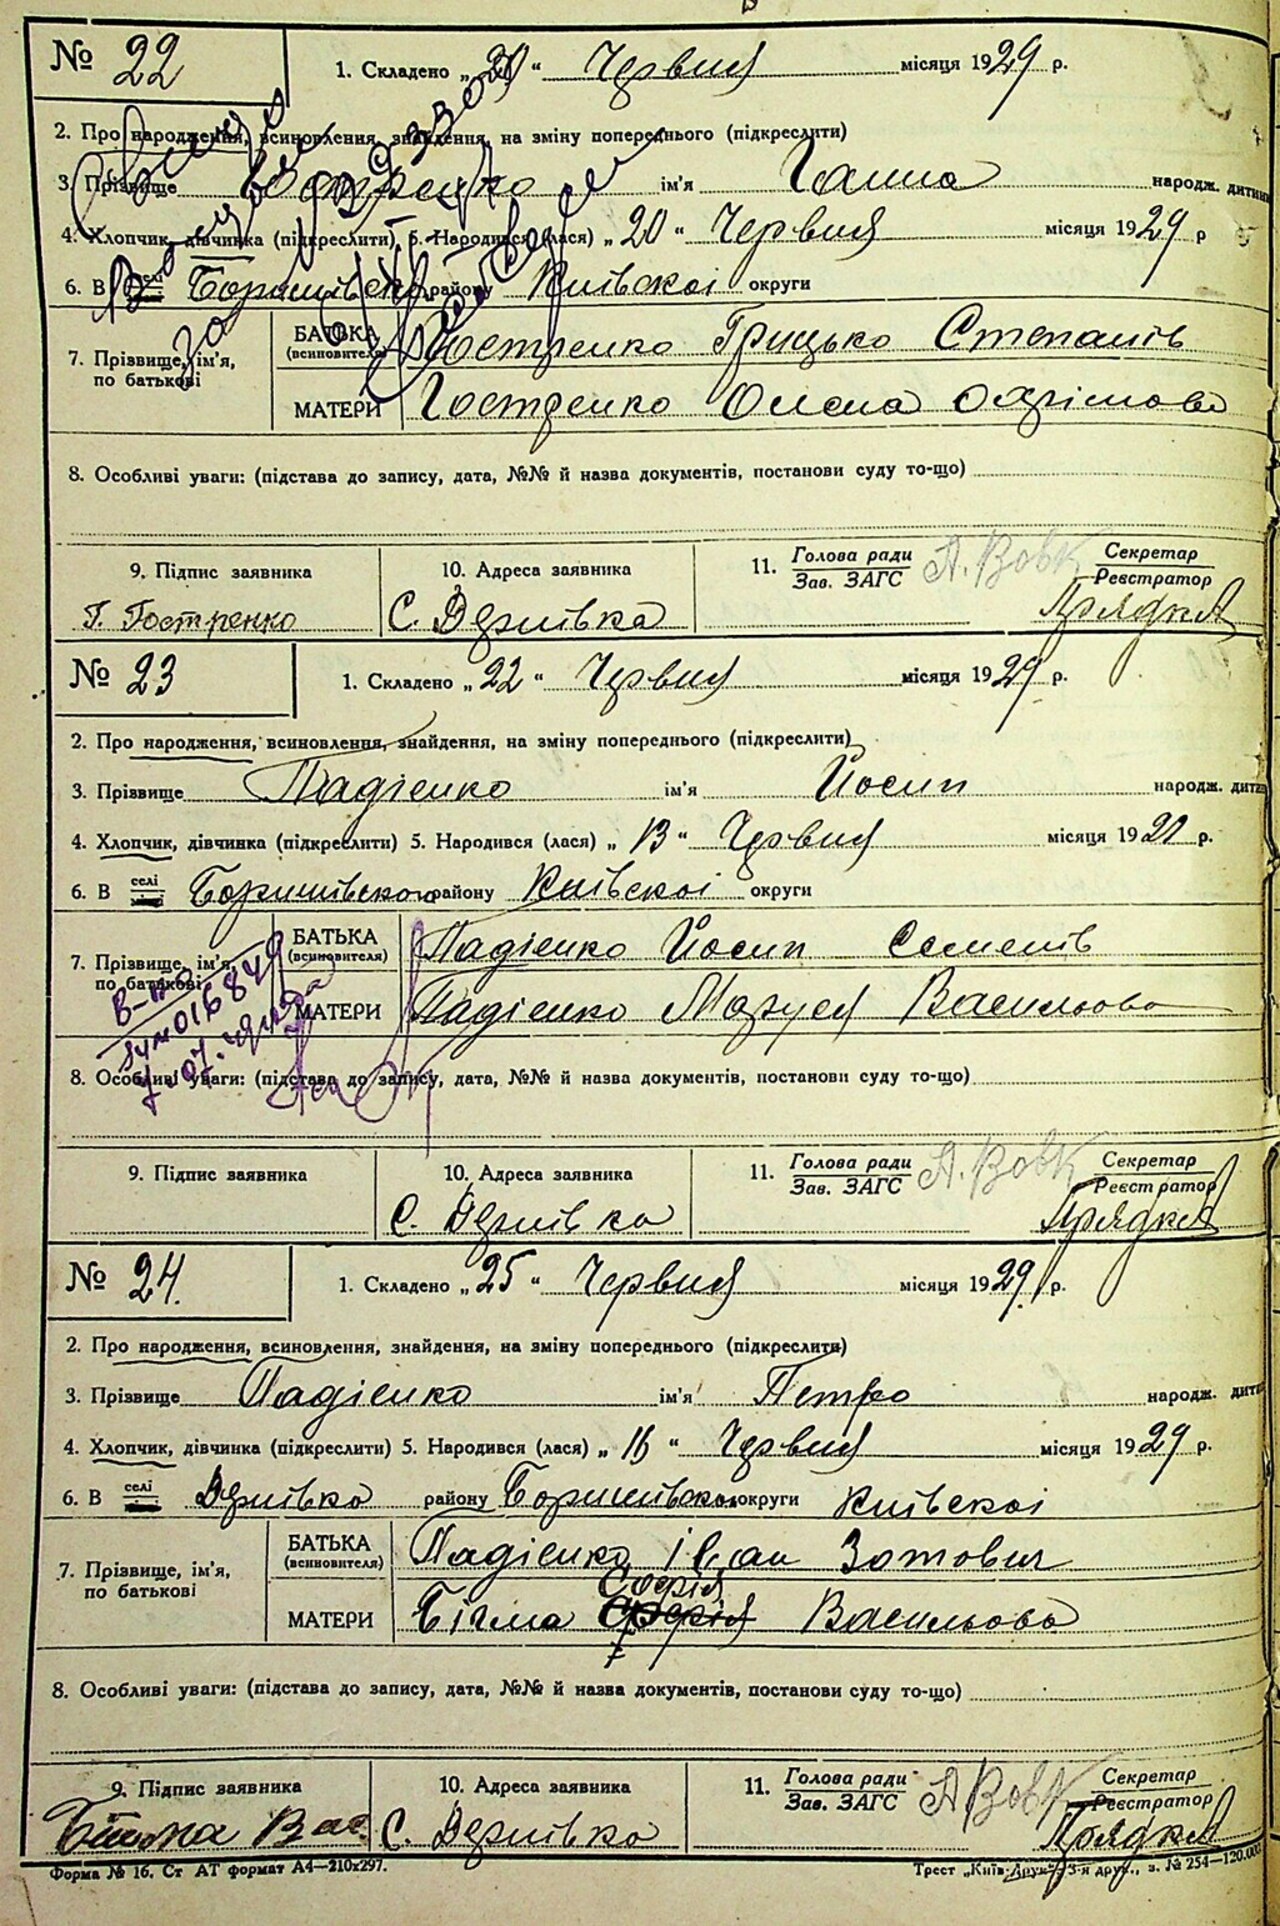 № 22
1. Складено „20“ Червня місяця 1929 р.
2. Про народження, всиновлення, знайдення, на зміну попереднього (підкреслити)
3. Прізвище Гостренко ім'я Ганна народж. дитини
4. Хлопчик, дівчинка (підкреслити) 5. Народився (лася) „20“ Червня місяця 1929 р
6. В селі району Київскоі округи
7. Прізвище, ім'я, по батькові
БАТЬКА (всиновителя) Гостренко Грицько Степанів
МАТЕРИ Гостренко Олена
8. Особливі уваги: (підстава до запису, дата, №№ й назва документів, постанови суду то-що)
9. Підпис заявника 10. Адреса заявника 11. Голова ради Зав. ЗАГС А. Вовк Секретар Реєстратор
Г. Гостренко С.
№ 23
1. Складено „22“ Червня місяця 1929 р.
2. Про народження, всиновлення, знайдення, на зміну попереднього (підкреслити)
3. Прізвище Падієнко ім'я Йосип народж. дити
4. Хлопчик, дівчинка (підкреслити) 5. Народився (лася) „13“ Червня місяця 19 р.
6. В селі району Київскоі округи
7. Прізвище, ім'я, по батькові
БАТЬКА (всиновителя) Падієнко Йосип Семенів
МАТЕРИ Падієнко Маруся Васильова
8. Особливі уваги: (підстава до запису, дата, №№ й назва документів, постанови суду то-що)
9. Підпис заявника 10. Адреса заявника 11. Голова ради Зав. ЗАГС А. Вовк Секретар Реєстратор
С.
№ 24.
1. Складено „25“ Червня місяця 1929 р.
2. Про народження, всиновлення, знайдення, на зміну попереднього (підкреслити)
3. Прізвище Падієнко ім'я Петро народж. дити
4. Хлопчик, дівчинка (підкреслити) 5. Народився (лася) „ “ Червня місяця 1929 р.
6. В селі району округи Київскоі
7. Прізвище, ім'я, по батькові
БАТЬКА (всиновителя) Падієнко Іван Зотович
Софія
МАТЕРИ Васильова
8. Особливі уваги: (підстава до запису, дата, №№ й назва документів, постанови суду то-що)
9. Підпис заявника 10. Адреса заявника 11. Голова ради Зав. ЗАГС А Вовк Секретар Реєстратор
Вас. С.
Форма № 16. Ст АТ формат А4—210х297. Трест „Київ-Друк“, 3-я друк., з. № 254—120.000